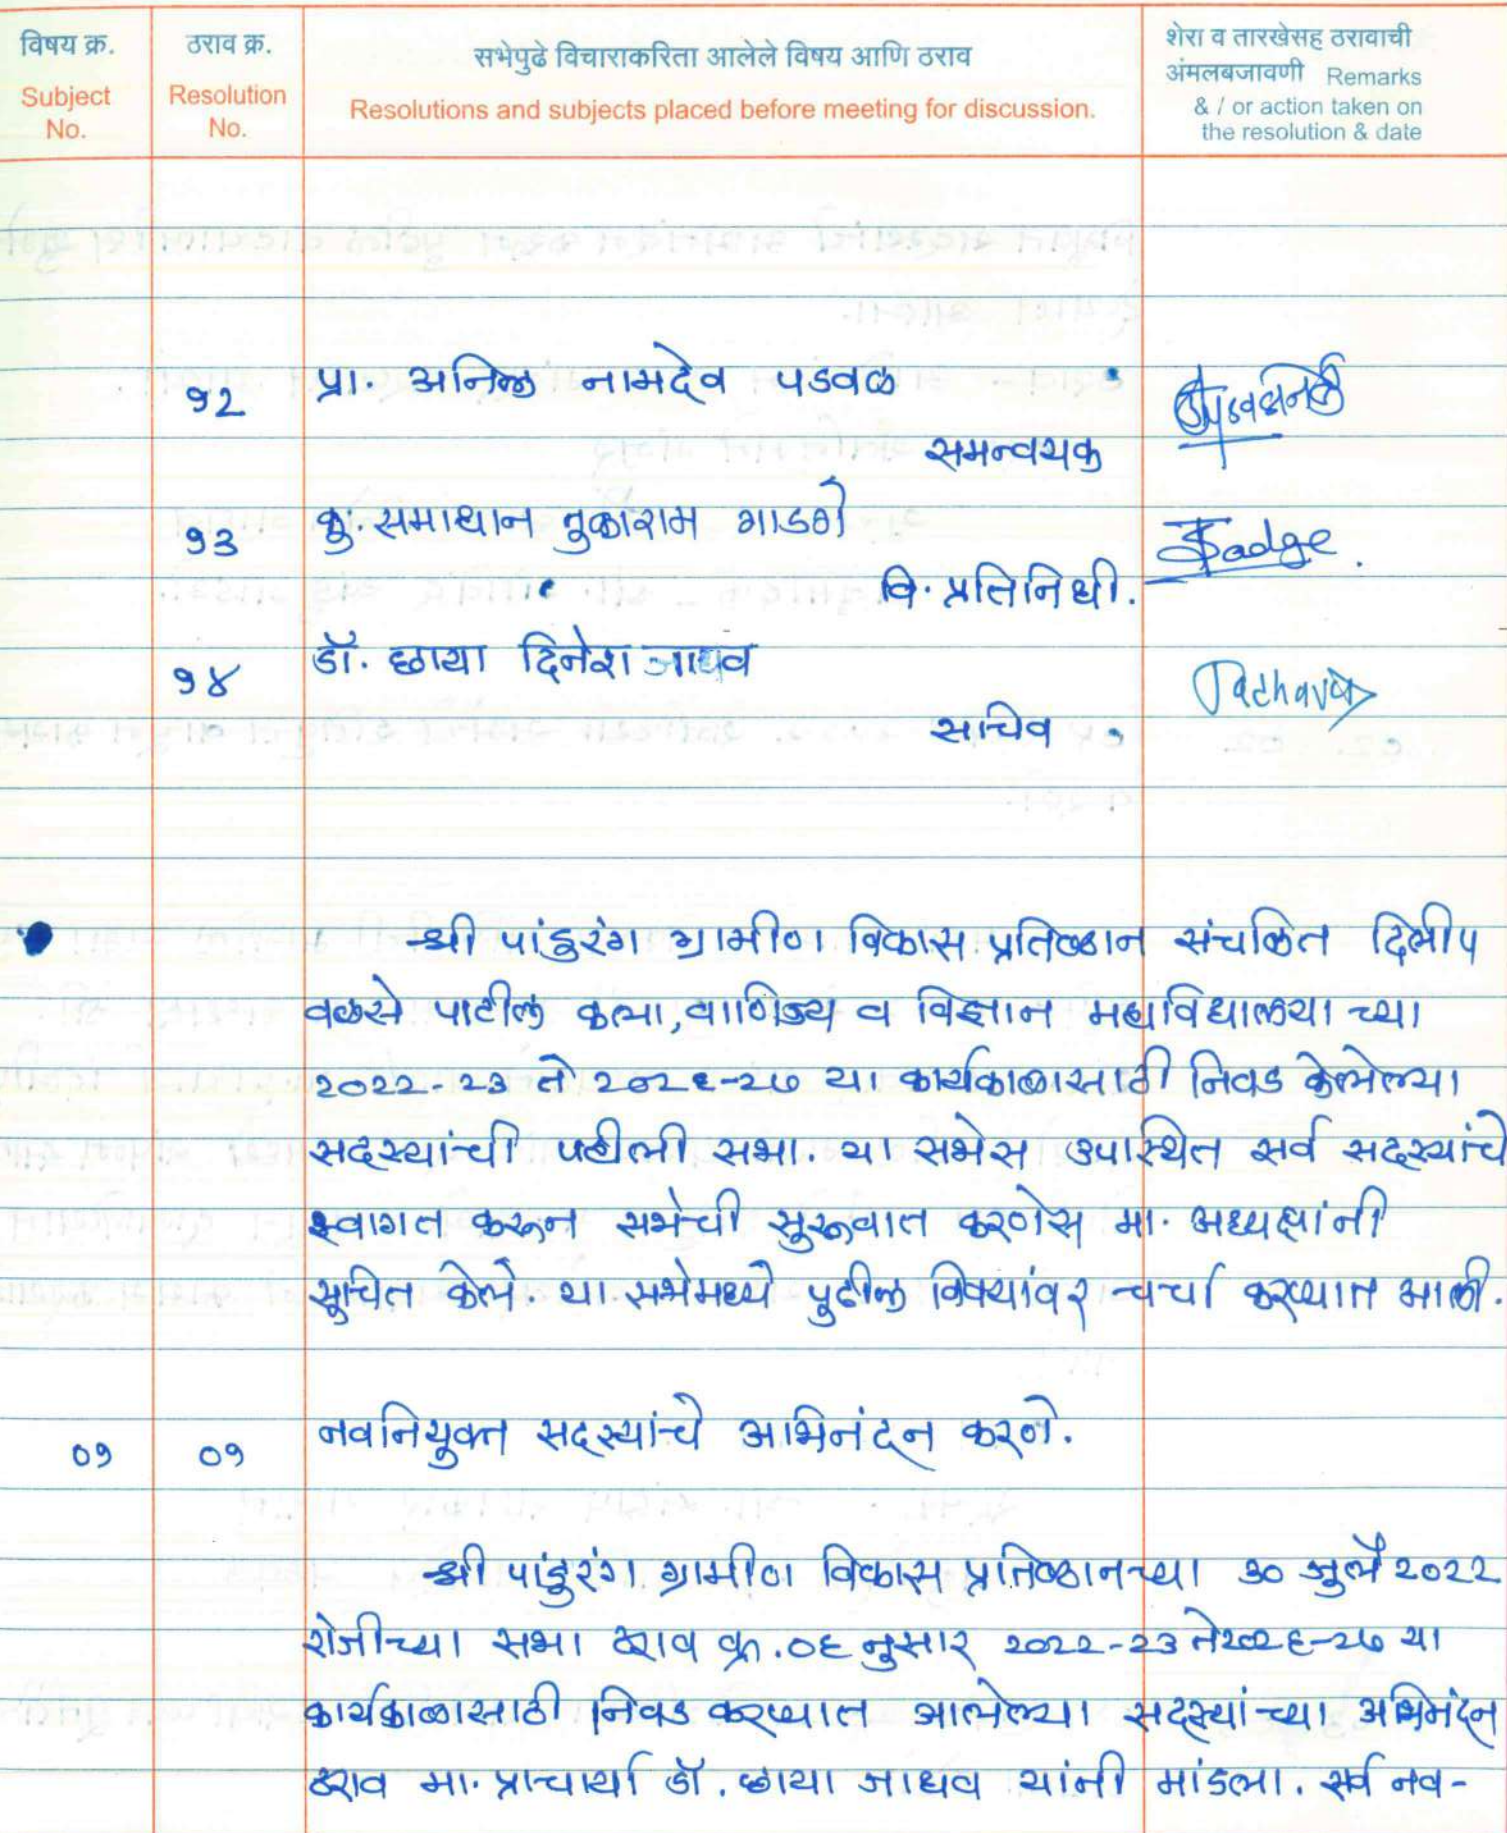 विषय क्र.
Subject
No.
ठराव क्र.
Resolution
No.
सभेपुढे विचाराकरिता आलेले विषय आणि ठराव
Resolutions and subjects placed before meeting for discussion.
शेरा व तारखेसह ठरावाची
अंमलबजावणी Remarks
& / or action taken on
the resolution & date
१२ प्रा. अनिल नामदेव पडवळ
समन्वयक
१३ कु. समाधान तुकाराम गाडगे Gadge.
वि. प्रतिनिधी.
१४ डॉ. छाया दिनेश जाधव Jadhav
सचिव.
श्री पांडुरंग ग्रामीण विकास प्रतिष्ठान संचलित दिलीप
वळसे पाटील कला, वाणिज्य व विज्ञान महाविद्यालया च्या
२०२२-२३ ते २०२६-२७ या कार्यकाळासाठी निवड केलेल्या
सदस्यांची पहीली सभा. या सभेस उपस्थित सर्व सदस्यांचे
स्वागत करून सभेची सुरूवात करणेस मा. अध्यक्षांनी
सूचित केले. या सभेमध्ये पुढील विषयांवर चर्चा करण्यात आली.
०१ ०१ नवनियुक्त सदस्यांचे अभिनंदन करणे.
श्री पांडुरंग ग्रामीण विकास प्रतिष्ठानच्या ३० जुलै २०२२
रोजीच्या सभा ठराव क्र. ०६ नुसार २०२२-२३ ते २०२६-२७ या
कार्यकाळासाठी निवड करण्यात आलेल्या सदस्यांच्या अभिनंदन
ठराव मा. प्राचार्या डॉ. छाया जाधव यांनी मांडला. सर्व नव-